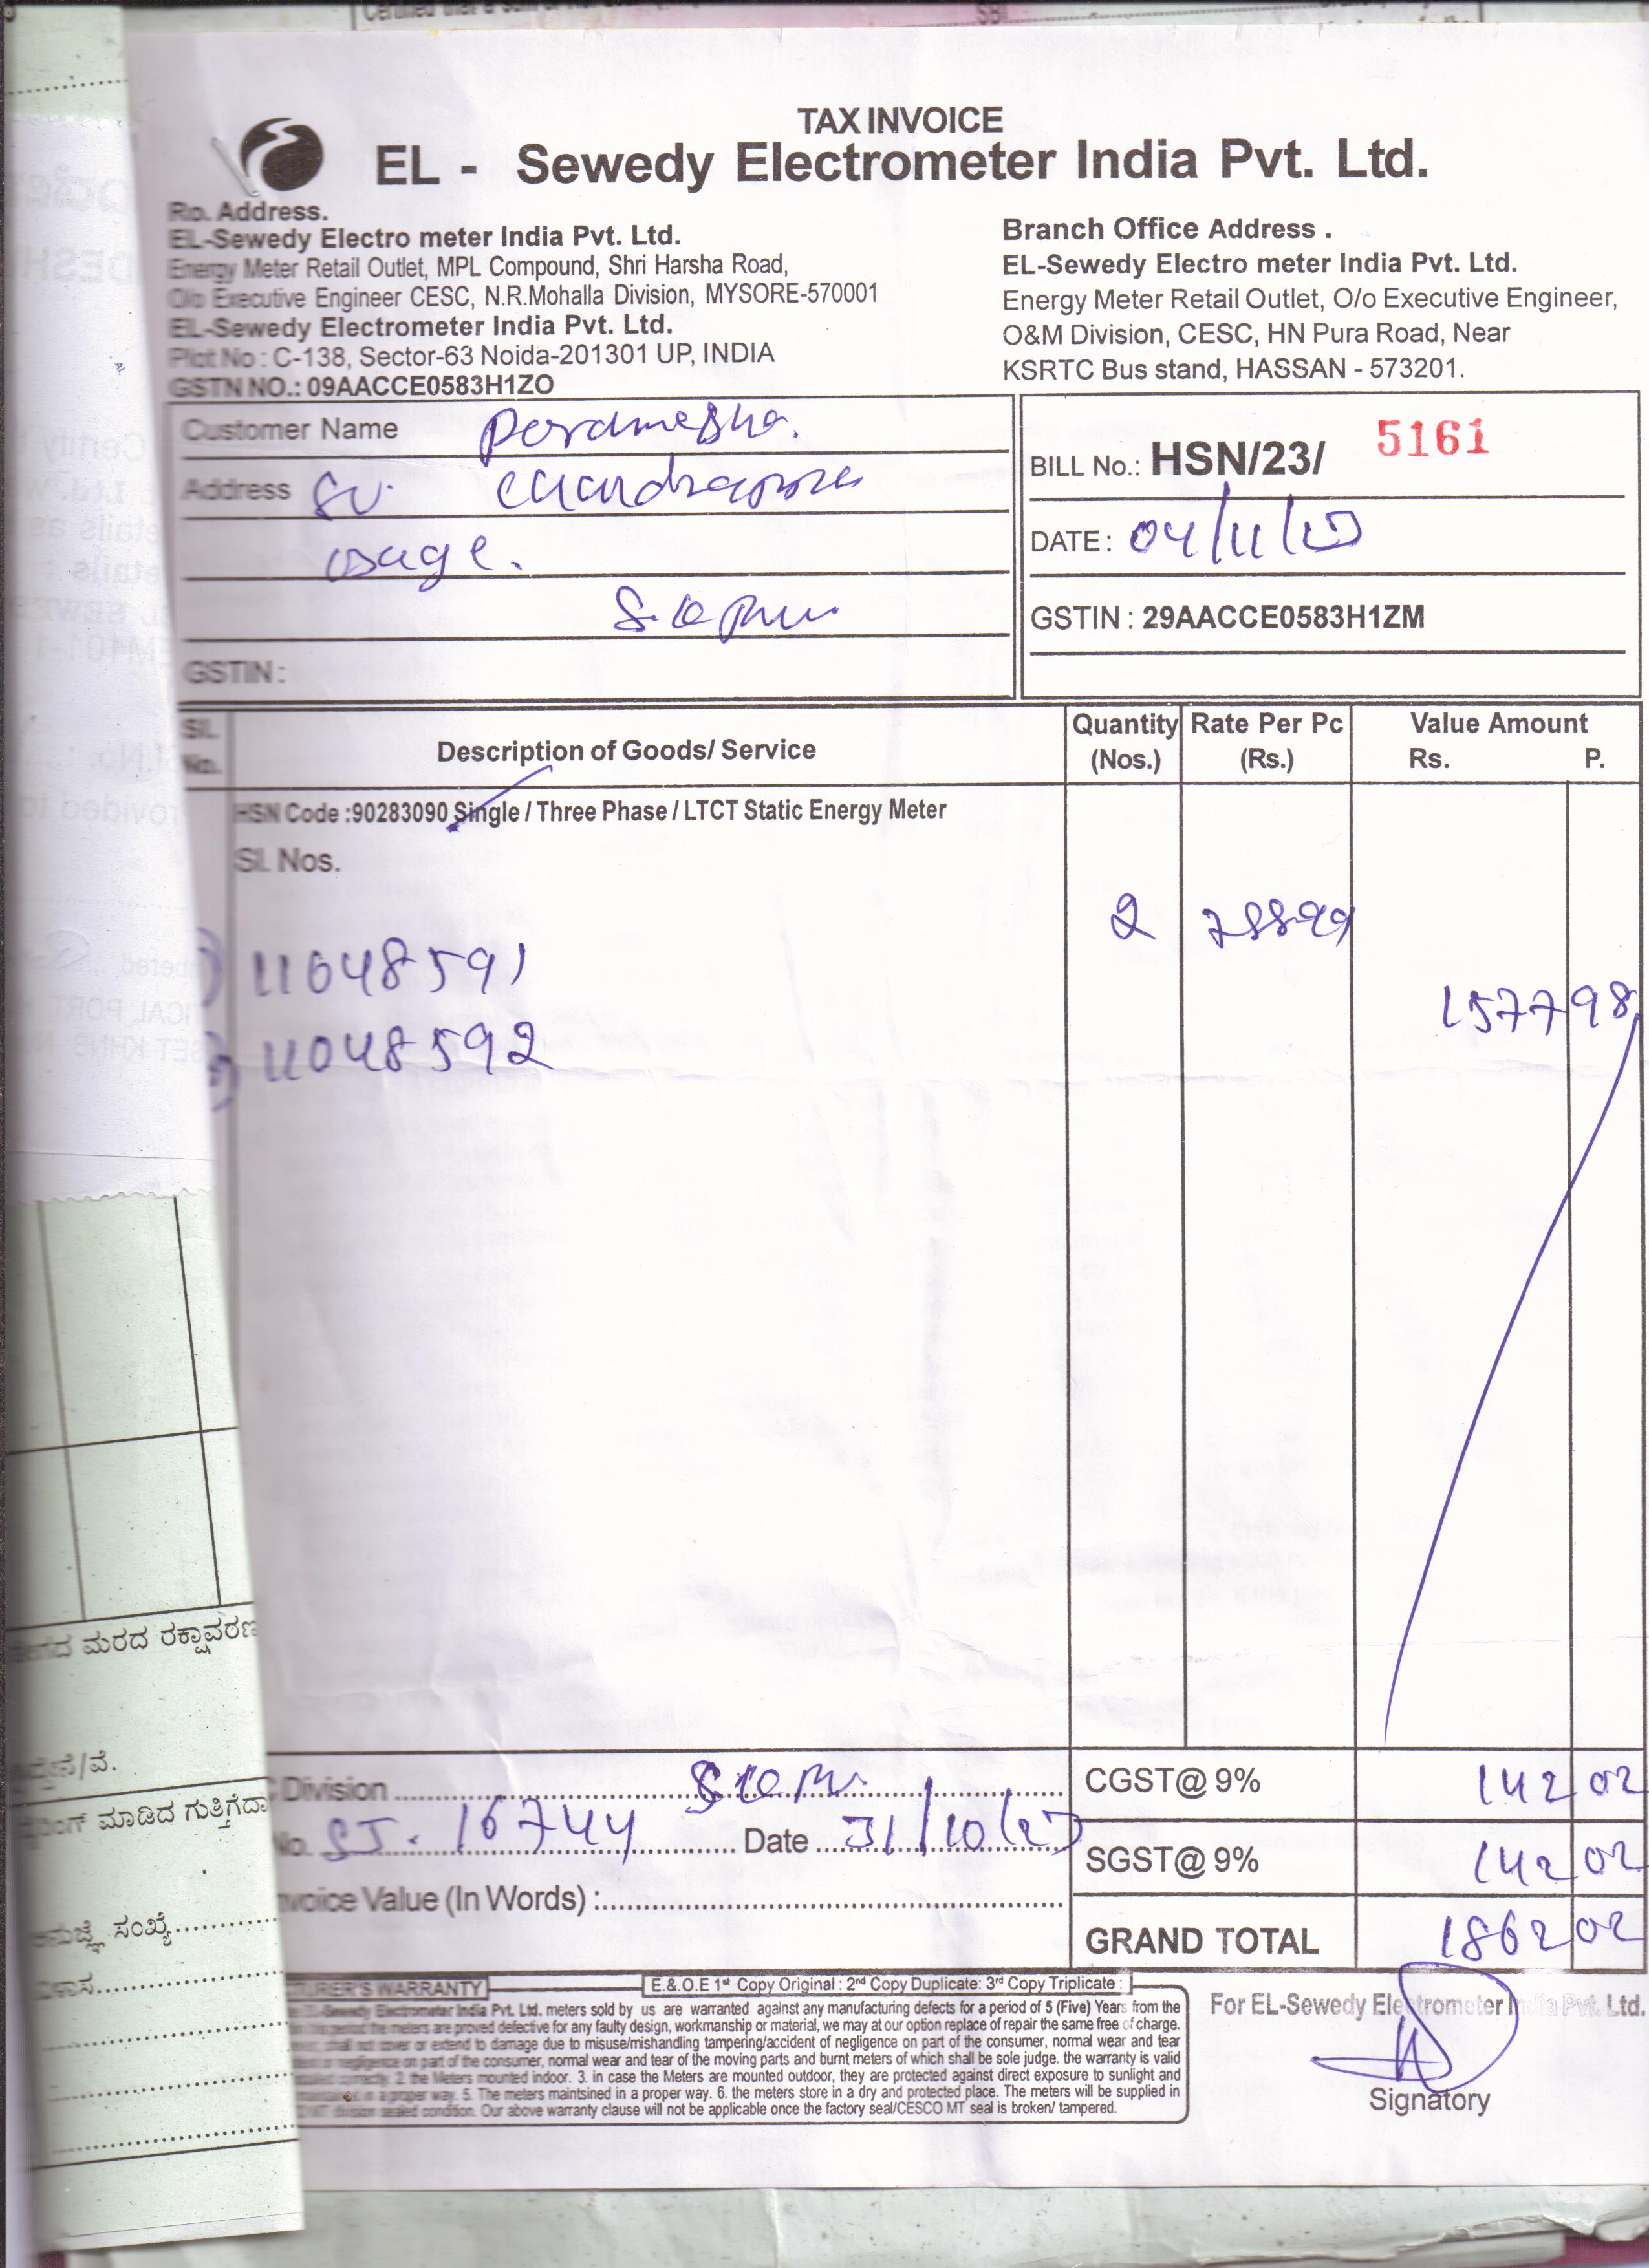 TAX INVOICE
EL - Sewedy Electrometer India Pvt. Ltd.
Ro. Address.
EL-Sewedy Electro meter India Pvt. Ltd.
Energy Meter Retail Outlet, MPL Compound, Shri Harsha Road,
O/o Executive Engineer CESC, N.R.Mohalla Division, MYSORE-570001
EL-Sewedy Electrometer India Pvt. Ltd.
Plot No : C-138, Sector-63 Noida-201301 UP, INDIA
GSTN NO.: 09AACCE0583H1ZO
Branch Office Address .
EL-Sewedy Electro meter India Pvt. Ltd.
Energy Meter Retail Outlet, O/o Executive Engineer,
O&M Division, CESC, HN Pura Road, Near
KSRTC Bus stand, HASSAN - 573201.
Customer Name
Address
GSTIN :
BILL No.: HSN/23/ 5161
DATE : 04/11/
GSTIN : 29AACCE0583H1ZM
Sl. No.
Description of Goods/ Service
Quantity (Nos.)
Rate Per Pc (Rs.)
Value Amount
Rs. P.
HSN Code :90283090 Single / Three Phase / LTCT Static Energy Meter
Sl. Nos.
2 78899
11048591
157798
11048592
Division
CGST@ 9% 14202
No. 16744 Date 31/10/23
SGST@ 9% 14202
Invoice Value (In Words) :
GRAND TOTAL 186202
WARRANTY
E.&.O.E 1st Copy Original : 2nd Copy Duplicate: 3rd Copy Triplicate :
EL-Sewedy Electrometer India Pvt. Ltd. meters sold by us are warranted against any manufacturing defects for a period of 5 (Five) Years from the
the meters are proved defective for any faulty design, workmanship or material, we may at our option replace of repair the same free of charge.
shall not cover or extend to damage due to misuse/mishandling tampering/accident of negligence on part of the consumer, normal wear and tear
or negligence on part of the consumer, normal wear and tear of the moving parts and burnt meters of which shall be sole judge. the warranty is valid
correctly. 2. the Meters mounted indoor. 3. in case the Meters are mounted outdoor, they are protected against direct exposure to sunlight and
in a proper way. 5. The meters maintsined in a proper way. 6. the meters store in a dry and protected place. The meters will be supplied in
MT division sealed condition. Our above warranty clause will not be applicable once the factory seal/CESCO MT seal is broken/ tampered.
For EL-Sewedy Electrometer India Pvt. Ltd.
Signatory
ಮರದ ರಕ್ಷಾವರಣ
ಮಾಡಿದ ಗುತ್ತಿಗೆದಾ
ಸಂಖ್ಯೆ